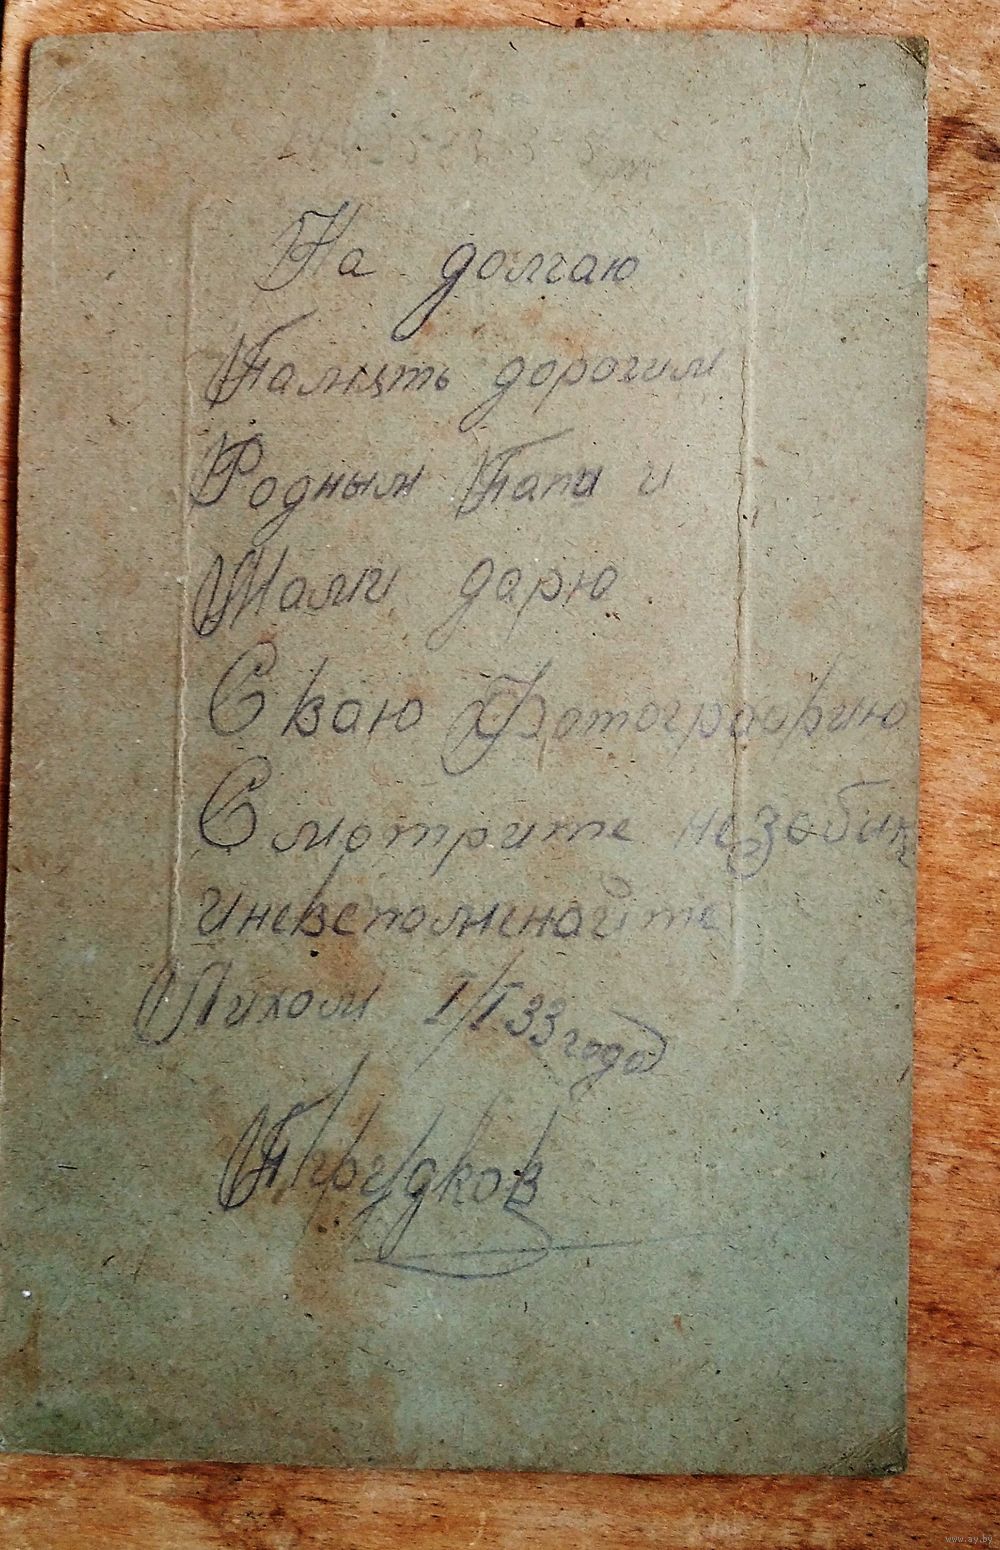 На долгаю
Память дорогим
Родным Папи и
Мами дарю
Сваю Фотографию
Смотрите незобив
иневсполменойте
Лихом 1/I 33 года
www.ay.by